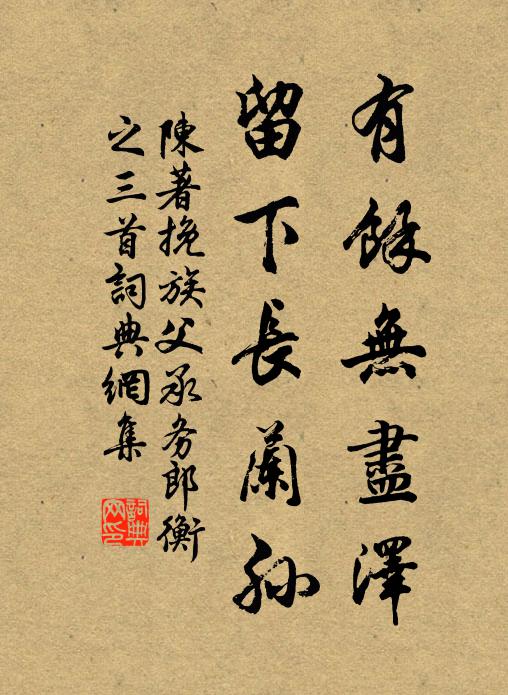 有餘無盡澤
留下長蘭孫
陳著挽族父承务郎衡
之三首詞典網集
詞典网印